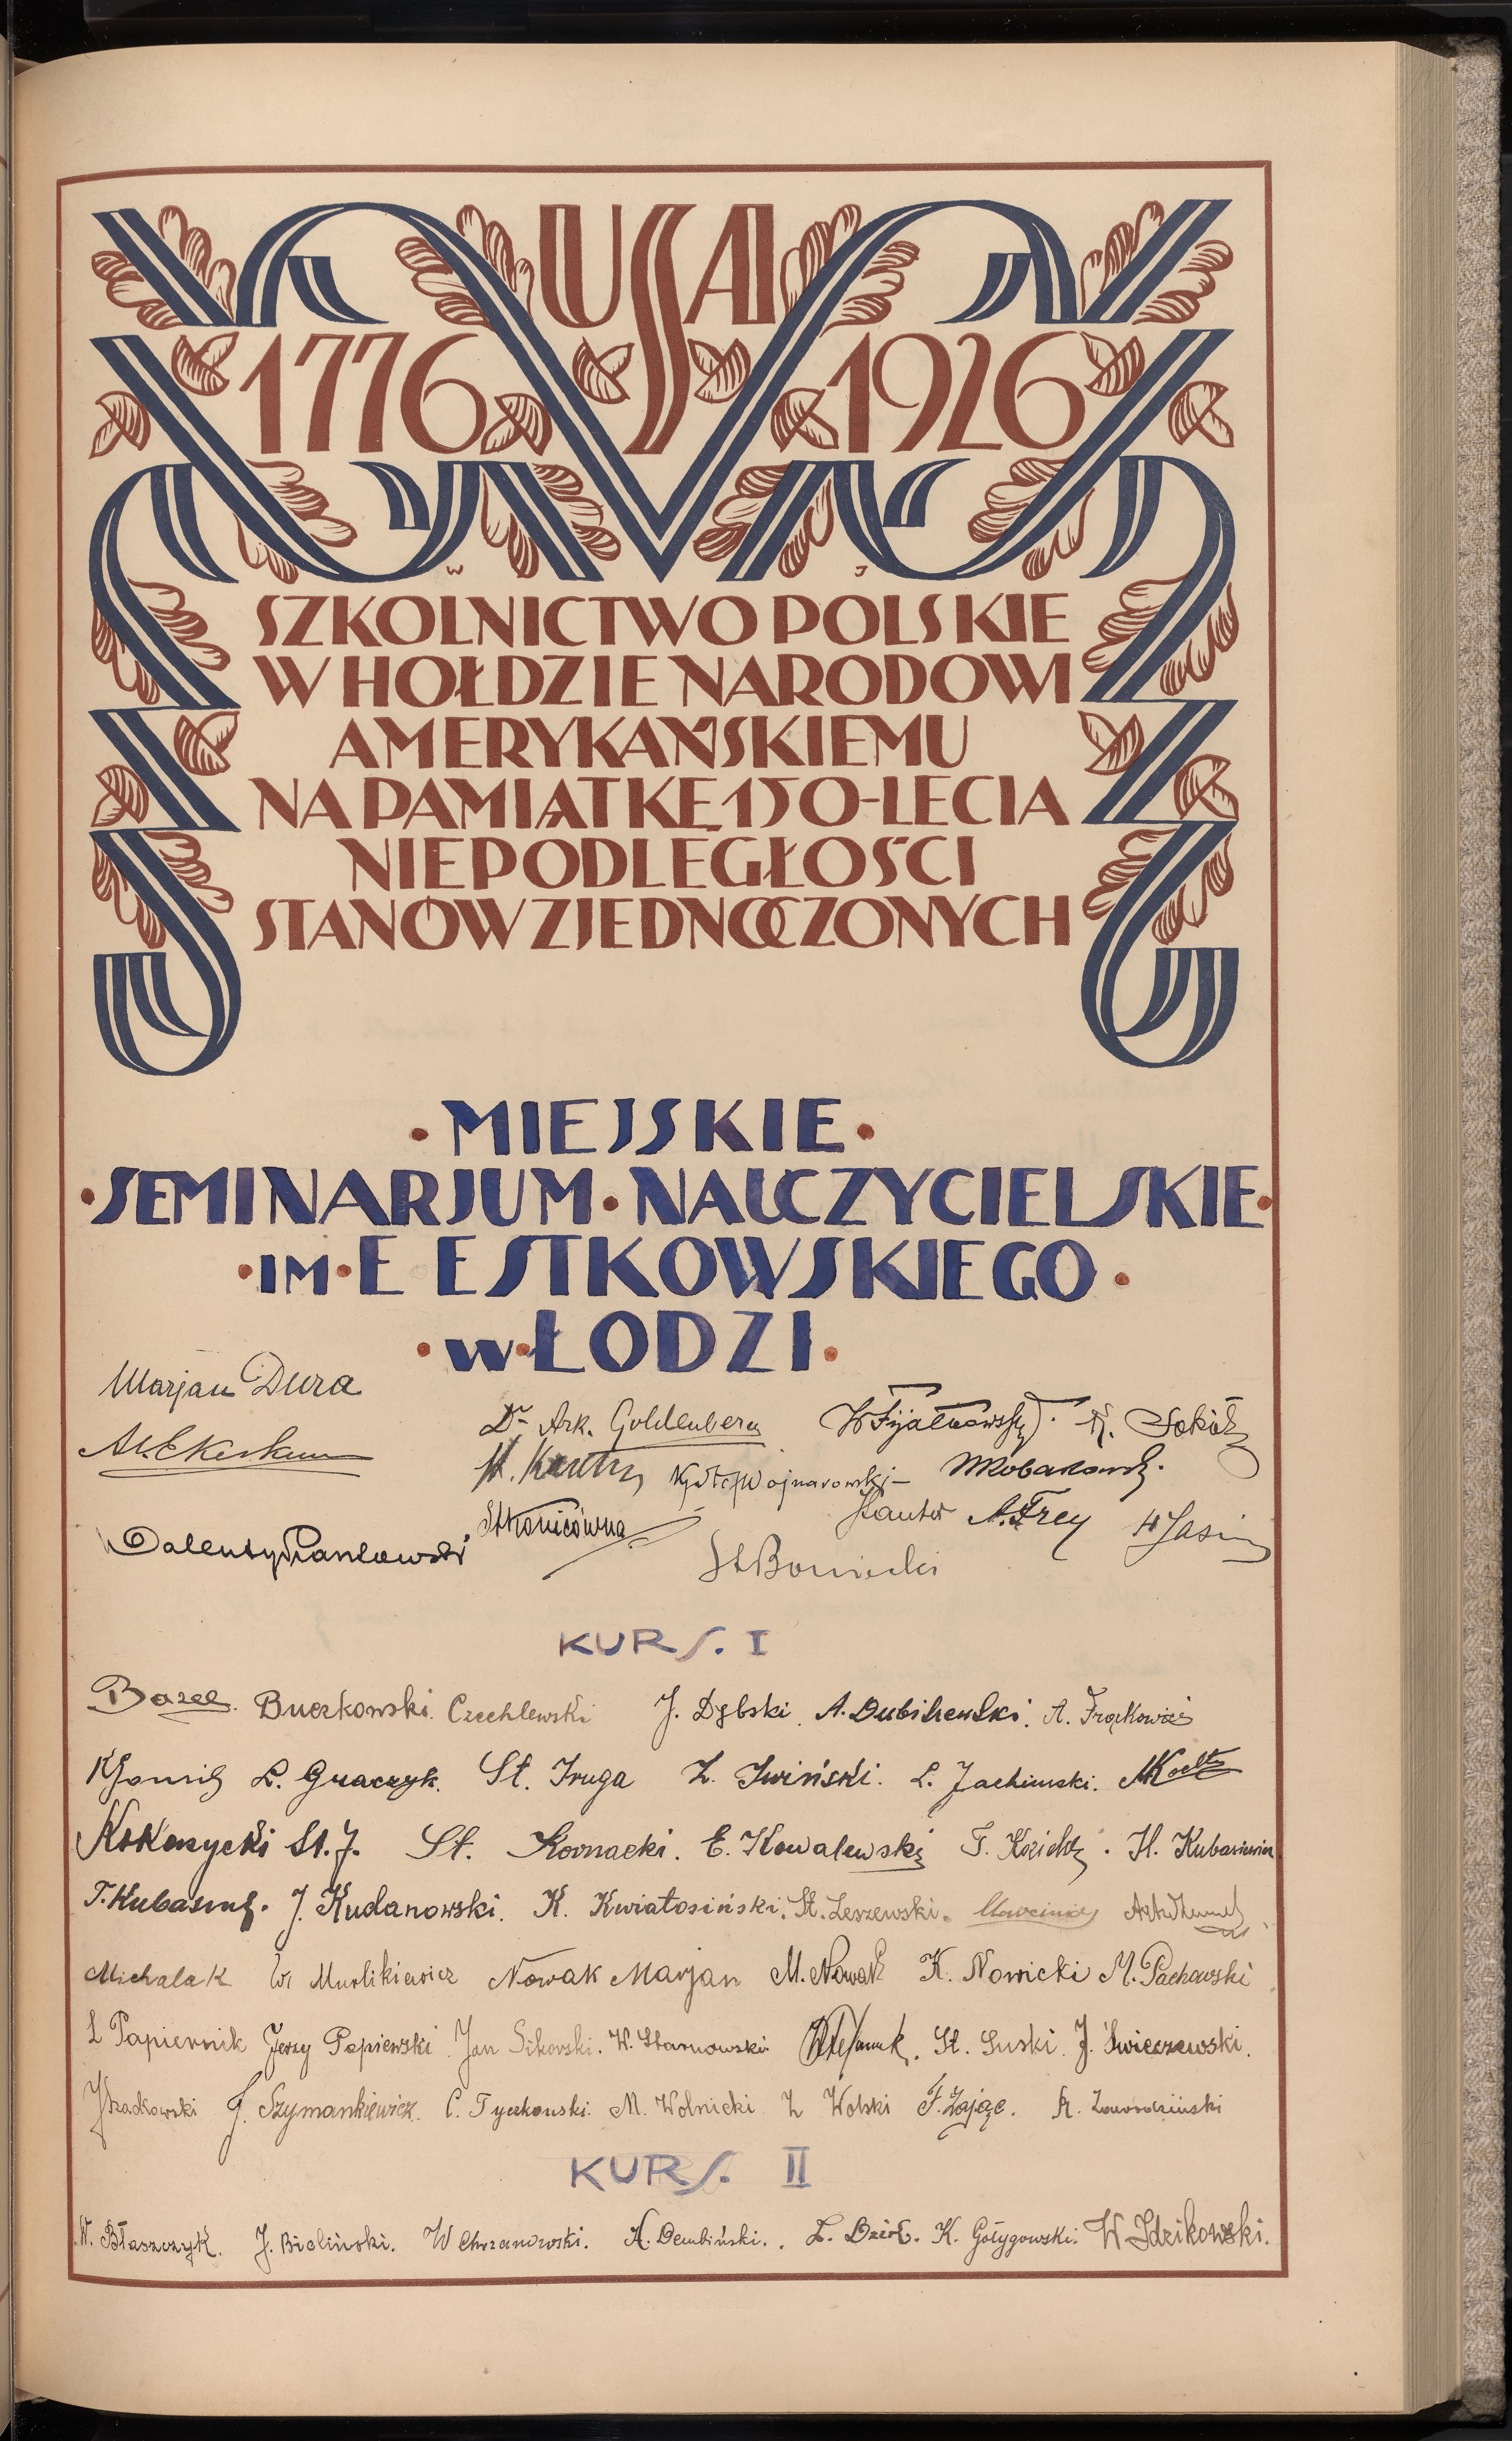 USA
1776 1926
W J
SZKOLNICTWO POLSKIE
W HOŁDZIE NARODOWI
AMERYKAŃSKIEMU
NA PAMIĄTKĘ 150-LECIA
NIEPODLEGŁOŚCI
STANÓW ZJEDNOCZONYCH
• MIEJSKIE •
• SEMINARJUM • NAUCZYCIELSKIE •
• IM • E ESTKOWSKIEGO •
• W • ŁODZI •
Marjan Dura
Dr Ark. Goldenberg W Fijałkowski. A. Sokół
Wojnarowski
A. Frey H Jasin
St Boniecki
KURS. I
Bazel. Buczkowski. Czechlewski J. Dębski. A. Dubilewski. A. Frąckowiak
L. Graczyk. St. Iruga Z. Iwiński. L. Jachimski. M Koch
Kokoszycki St. J. St. Kornacki. E. Kowalewski F. H. Kubasiewicz
J. Kudanowski. K. Kwiatosiński. St. Leszewski. Marciniak
Michalak W Murlikiewicz Nowak Marjan M. Nowak K. Nowicki M. Pachowski
L Papiernik Jerzy Papierski Jan Sikorski. W. Starnowski Stefaniak. St. Suski. J. Świeczewski.
J Szadkowski J. Szymankiewicz. C. Tyczkowski. M. Wolnicki Z Wolski F. Zając. A. Zaworodziński
KURS. II
W. Błaszczyk. J. Bieliński. W Chrzanowski. A. Dembiński. Z. Dzioł. K. Gołygowski. W Idzikowski.